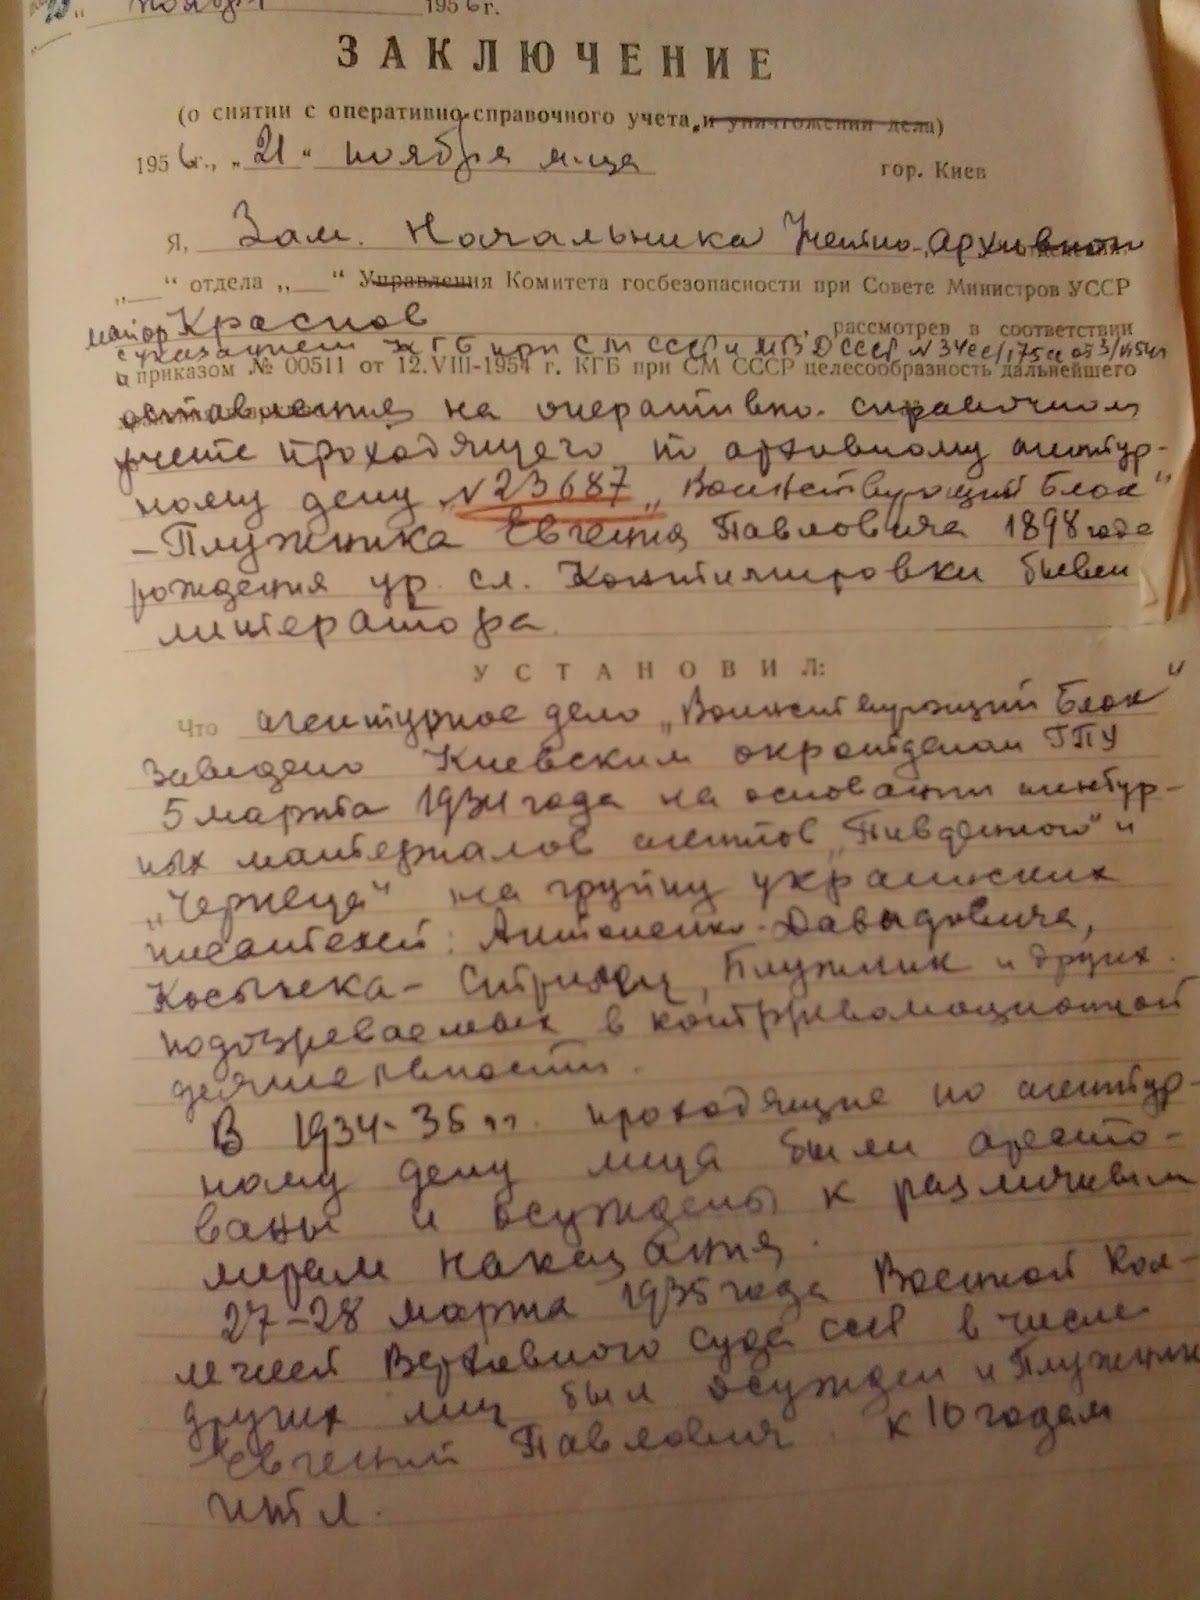 ноября 1956 г.
ЗАКЛЮЧЕНИЕ
(о снятии с оперативно-справочного учета и уничтожении дела)
1956 г., „21“ ноября м-ца гор. Киев
Я, Зам. Начальника Учетно-Архивного
„__“ отдела „__“ Управления Комитета госбезопасности при Совете Министров УССР
майор Краснов, рассмотрев в соответствии
с указанием КГБ при СМ СССР и МВД СССР №
и приказом № 00511 от 12.VIII-1954 г. КГБ при СМ СССР целесообразность дальнейшего
оставления на оперативно-справочном
учете проходящего по архивному агентур-
ному делу №23687 „Воинствующий блок“
– Плужника Евгения Павловича 1898 года
рождения ур. сл. бывш
литератора.
УСТАНОВИЛ:
Что агентурное дело „Воинствующий блок“
Заведено Киевским окротделом ГПУ
5 марта 1934 года на основании агентур-
ных материалов агентов „Пивденного“ и
„Чернеца“ на группу украинских
писателей: Антоненко-Давыдовича,
Косынка-Стрилец, Плужник и других
подозреваемых в контрреволюционной
деятельности.
В 1934-35 гг. проходящие по агентур-
ному делу лица были аресто-
ваны и осуждены к различным
мерам наказания.
27-28 марта 1935 года Военной Кол-
легией Верховного суда СССР в числе
других лиц был осужден и Плужник
Евгений Павлович к 10 годам
ИТЛ.